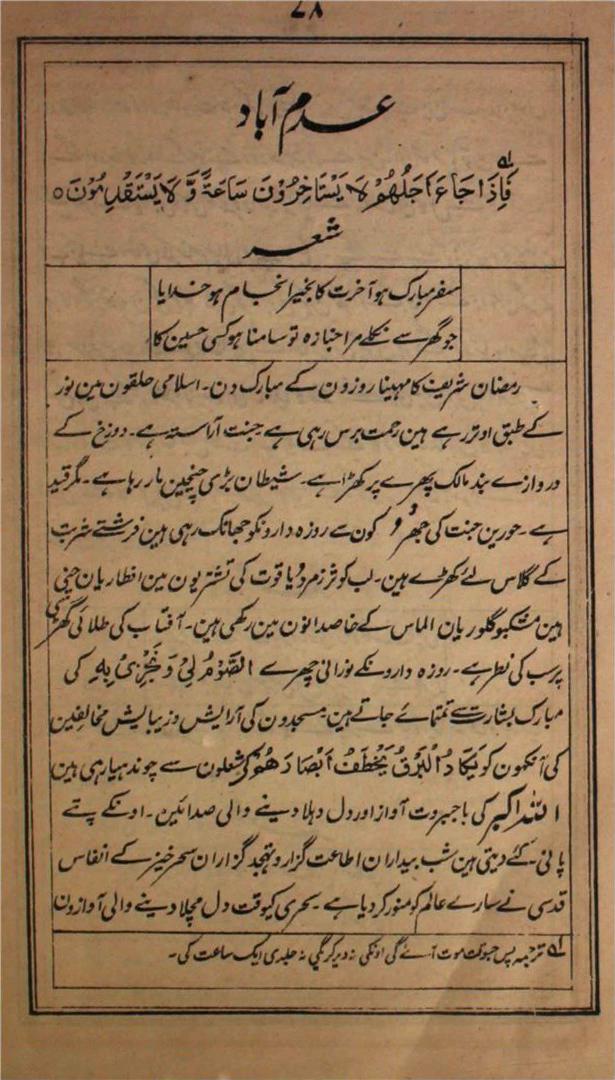 ۷۸
عدم آباد
فَاِذَا جَاءَ اَجَلُهُمْ لَا يَسْتَاخِرُوْنَ سَاعَةً وَّ لَا يَسْتَقْدِمُوْنَ ○ لہ
شعر
سفر مبارک ہو آخرت کا بخیر انجام ہو خدایا
جو گھر سے نکلے مرا جنازہ تو سامنا ہو کسی حسین کا
رمضان شریف کا مہینا روزون کے مبارک دن۔ اسلامی حلقون مین نور
کے طبق اوتر رہے ہین رحمت برس رہی ہے جنت آراستہ ہے۔ دوزخ کے
دروازے بند مالک پھرے پر کھڑا ہے۔ شیطان بڑی چیخین مار رہا ہے۔ مگر قید
ہے۔ حورین جنت کی جھروکون سے روزہ دارونکو جھانک رہی ہین فرشتے شربت
کے گلاس لئے کھڑے ہین۔ لب کوثر زمرد و یاقوت کی تشتریون مین افطاریان چنی
ہین مشکبو گلوریان الماس کے خاصدانون مین رکھی ہین۔ آفتاب کی طلائی گھڑی
پر سب کی نظر ہے۔ روزہ دارونکے نورانی چہرے الصَّوْمُ لِیْ وَ نَجْزِیْ بِهٖ کی
مبارک بشارت سے تمتمائے جاتے ہین مسجدون کی آرایش و زیبایش مخالفین
کی آنکھون کو يَكَادُ الْبَرْقُ يَخْطَفُ اَبْصَارَهُمْ کی شعلون سے چوندہیا رہی ہین
اللہ اکبر کی با جبروت آواز اور دل دہلا دینے والی صدائین۔ اونکے پتے
پانی۔ کئے دیتی ہین شب بیداران اطاعت گزار و تہجد گزاران سحر خیز کے انفاس
قدسی نے سارے عالم کو منور کر دیا ہے۔ سحری کیوقت دل مچلا دینے والی آوازون
لہ ترجمہ پس جبوقت موت آے گی اونکی نہ دیر کریگی نہ جلدی ایک ساعت کی۔